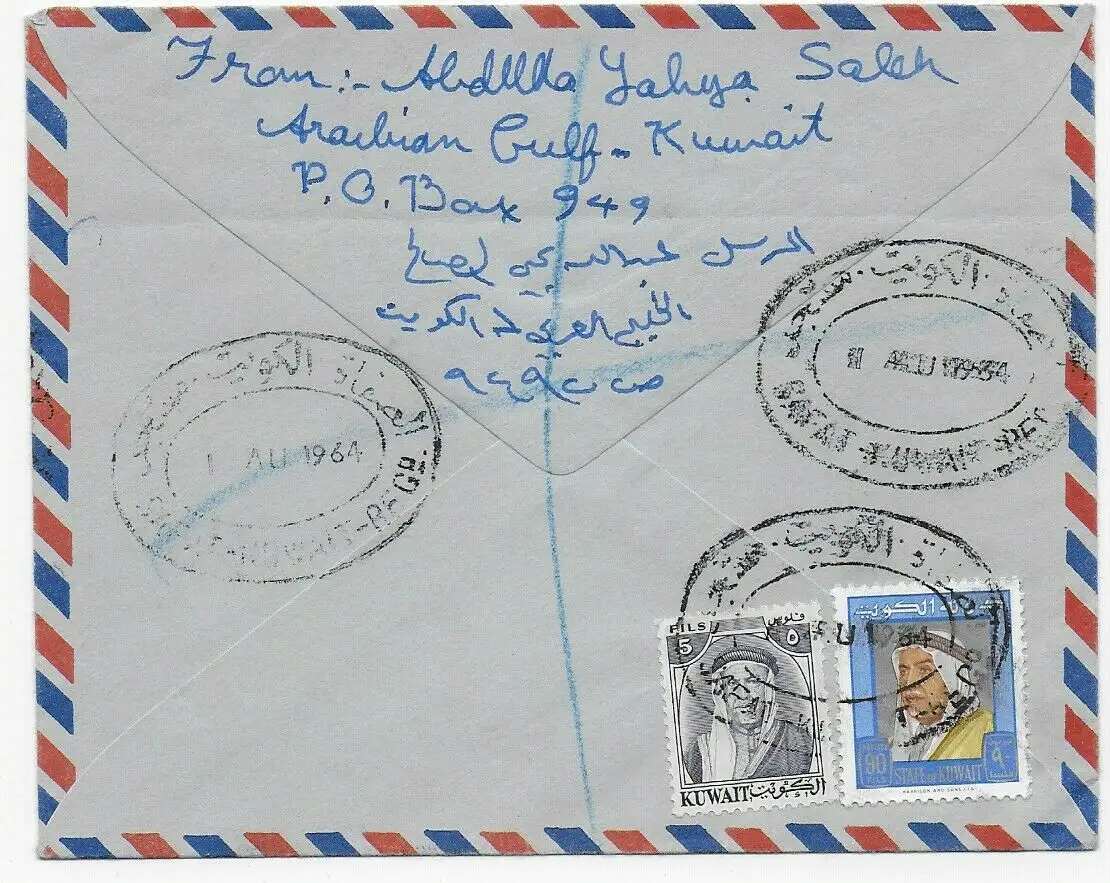 From:- Abdulla Yahya Saleh
Arabian Gulf - Kuwait
P.O. Box 949
المرسل عبدالله يحيى صالح
الخليج العربي - الكويت
ص ب ٩٤٩
الصفاة الكويت مسجل
1 AU 1964
SAFAT-KUWAIT-REGD.
الصفاة الكويت مسجل
SAFAT-KUWAIT-REG
الصفاة الكويت
AU 1964
FILS فلوس
5 ٥
KUWAIT الكويت
دولة الكويت
90 ٩٠
FILS
STATE OF KUWAIT
HARRISON AND SONS LTD